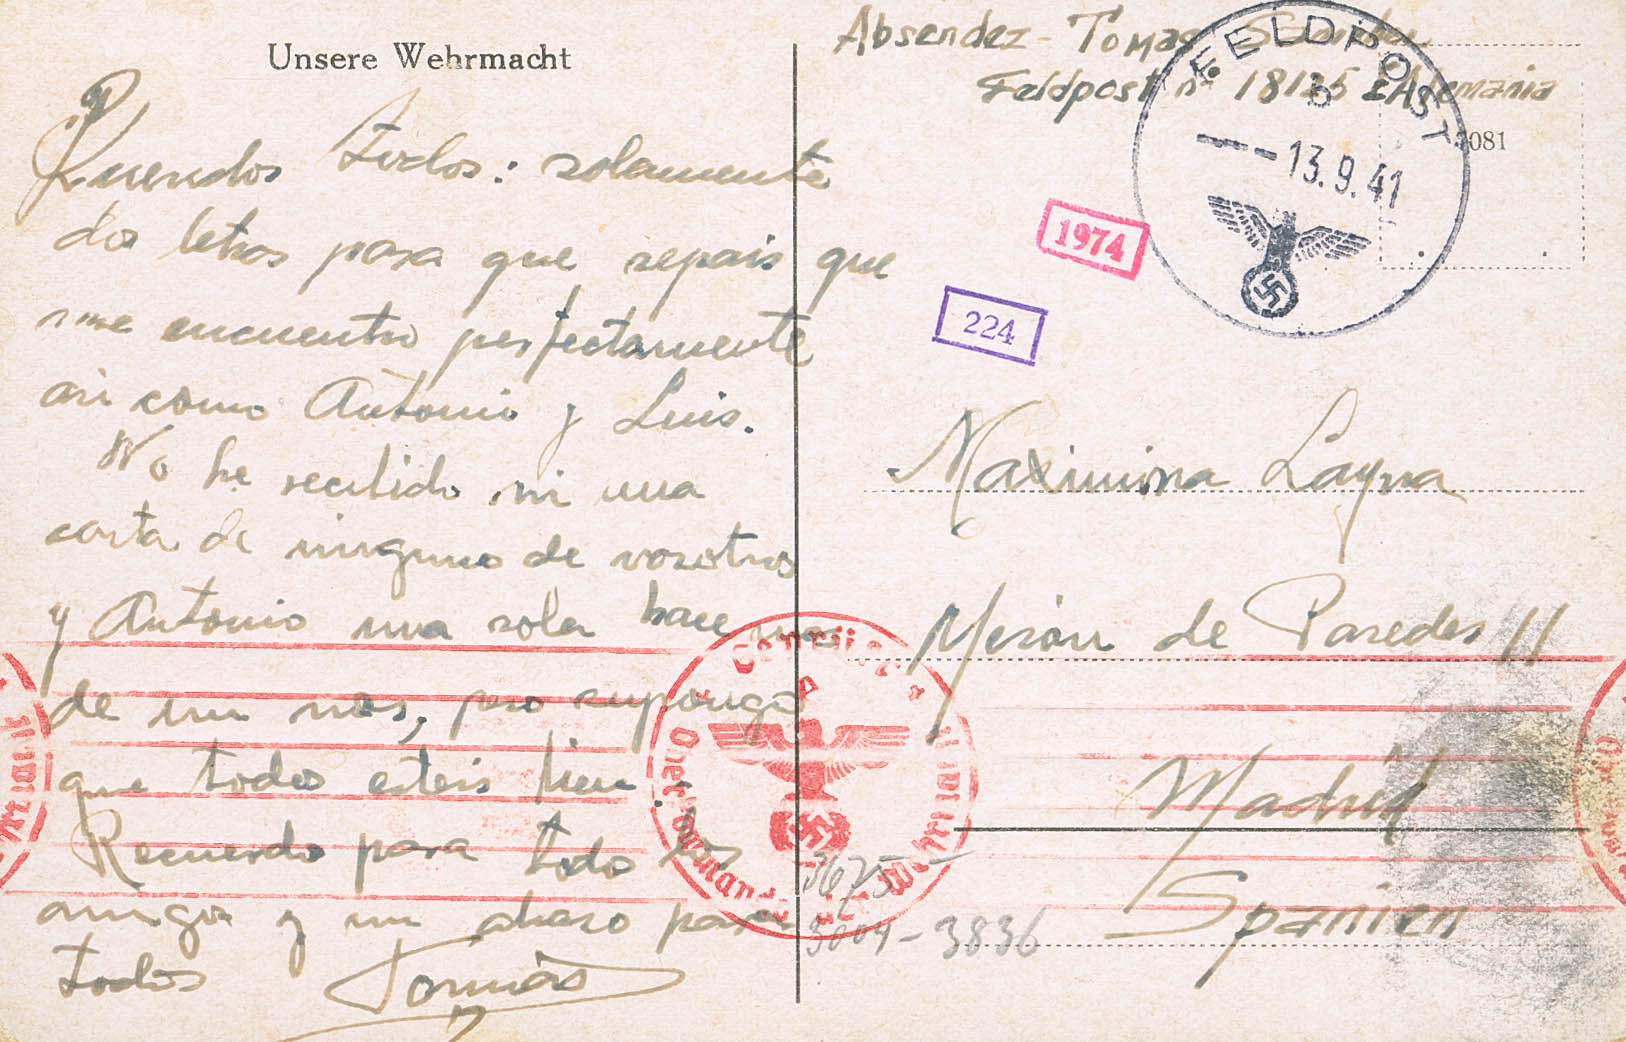 Unsere Wehrmacht
Queridos todos: solamente
dos letras para que sepais que
me encuentro perfectamente
asi como Antonio y Luis.
No he recibido ni una
carta de ninguno de vosotros
y Antonio una sola hace mas
de un mes, pero supongo
que todos esteis bien.
Recuerdo para todos los
amigos y un abrazo para
todos Tomás
Absender - Tomas
Feldpost nº 18125 Alemania
FELDPOST
b
13.9.41
1974
224
Maximina Layna
Mesón de Paredes 11
Madrid
Spanien
Oberkommando der Wehrmacht
3675 -
3009 - 3836